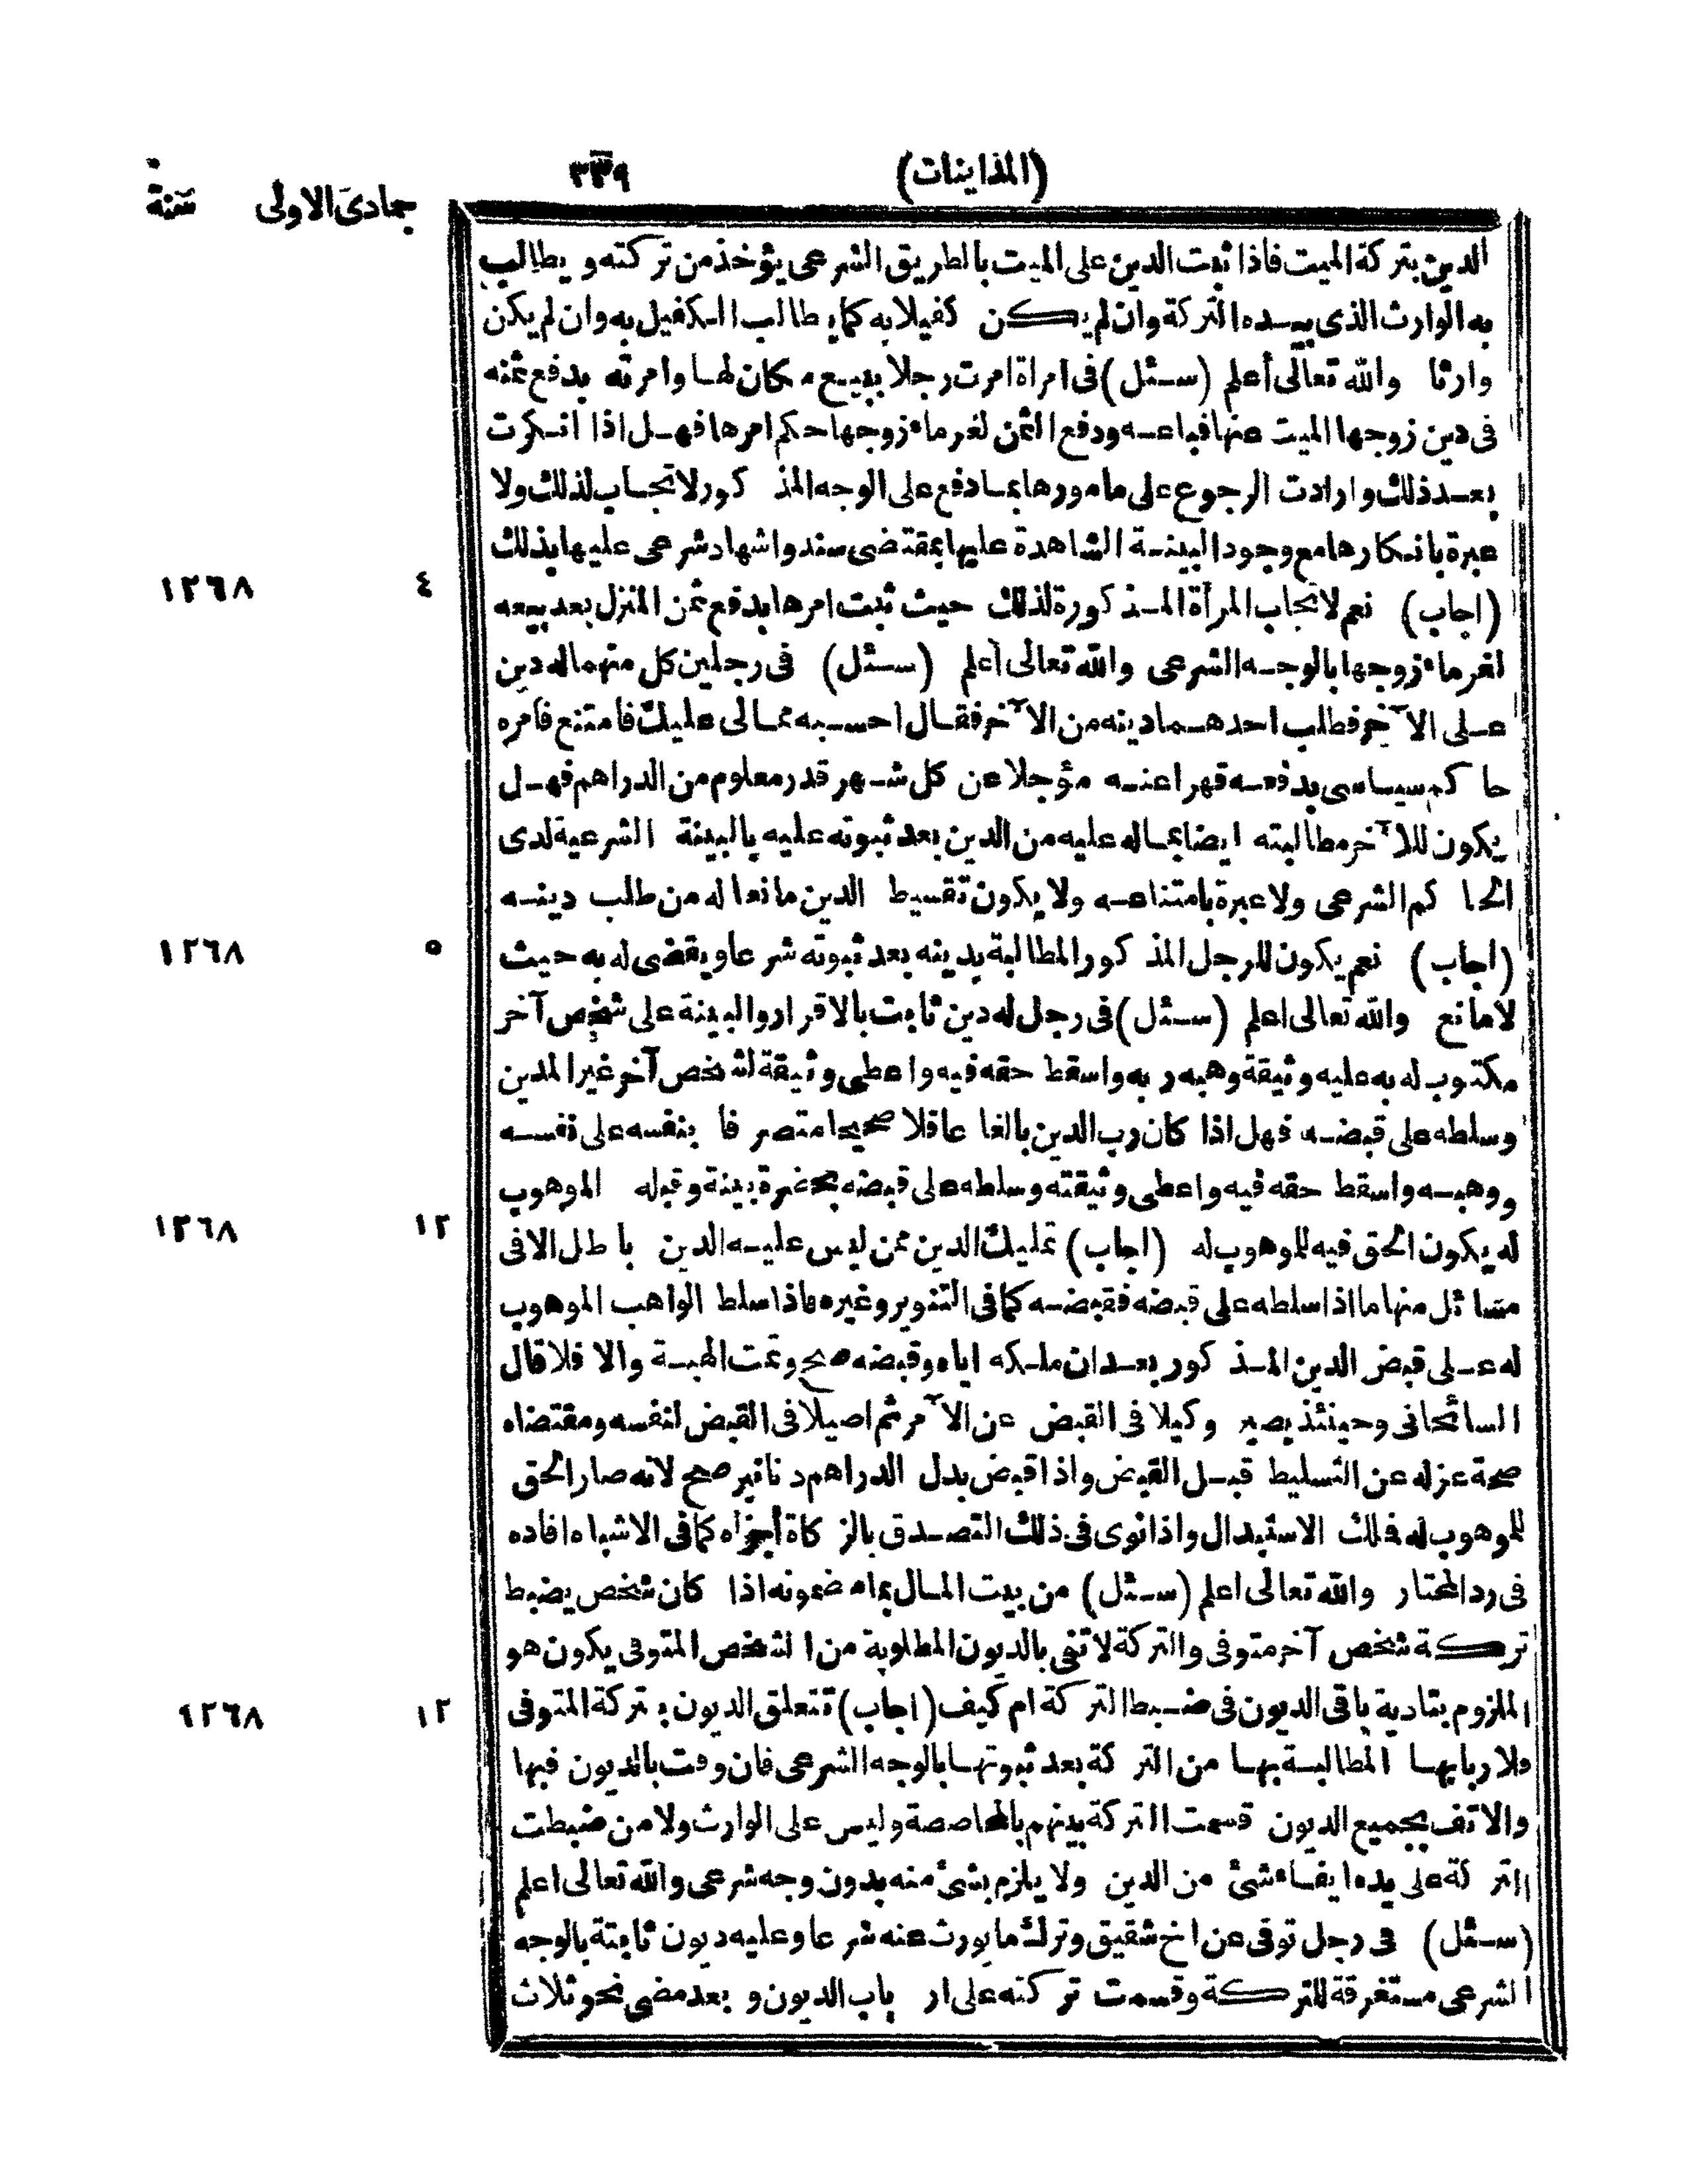 (المداينات) ٣٣٩
جمادى الاولى سنة
الدين بتركة الميت فاذا ثبت الدين على الميت بالطريق الشرعى يؤخذ من تركته ويطالب
به الوارث الذى بيده التركة وان لم يكن كفيلا به كما يطالب الكفيل به وان لم يكن
وارثا والله تعالى أعلم (سئل) فى امراة امرت رجلا ببيع مكان لها وامرته بدفع ثمنه
فى دين زوجها الميت عنها فباعه ودفع الثمن لغرماء زوجها حكم امرها فهل اذا انكرت
بعد ذلك وارادت الرجوع على مامورها بما دفع على الوجه المذكور لا تجاب لذلك ولا
عبرة بانكارها مع وجود البينة الشاهدة عليها بمقتضى سند واشهاد شرعى عليها بذلك
(اجاب) نعم لا تجاب المرأة المذكورة لذلك حيث ثبت امرها بدفع ثمن المنزل بعد بيعه ٤ ١٢٦٨
لغرماء زوجها بالوجه الشرعى والله تعالى أعلم (سئل) فى رجلين كل منهما له دين
على الآخر فطلب احدهما دينه من الآخر فقال احسبه ممالى عليك فامتنع فامره
حاكم سياسى بدفعه قهرا عنه مؤجلا عن كل شهر قدر معلوم من الدراهم فهل
يكون للآخر مطالبته ايضا بماله عليه من الدين بعد ثبوته عليه بالبينة الشرعية لدى
الحاكم الشرعى ولا عبرة بامتناعه ولا يكون تقسيط الدين مانعا له من طلب دينه
(اجاب) نعم يكون للرجل المذكور المطالبة بدينه بعد ثبوته شرعا ويقضى له به حيث ٥ ١٢٦٨
لا مانع والله تعالى اعلم (سئل) فى رجل له دين ثابت بالاقرار والبينة على شخص آخر
مكتوب له به عليه وثيقة وهبه ربه واسقط حقه فيه واعطى وثيقة لشخص آخر غير المدين
وسلطه على قبضه فهل اذا كان رب الدين بالغا عاقلا صحيحا متصرفا بنفسه على نفسه
ووهبه واسقط حقه فيه واعطى وثيقته وسلطه على قبضه بحضرة بينة وقبله الموهوب
له يكون الحق فيه للموهوب له (اجاب) تمليك الدين ممن ليس عليه الدين باطل الا فى ١٢ ١٢٦٨
مسائل منها ما اذا سلطه على قبضه فقبضه كما فى التنوير وغيره فاذا سلط الواهب الموهوب
له على قبض الدين المذكور بعد ان ملكه اياه وقبضه صح وتمت الهبة والا فلا قال
السائحانى وحينئذ يصير وكيلا فى القبض عن الآمر ثم اصيلا فى القبض لنفسه ومقتضاه
صحة عزله عن التسليط قبل القبض واذا قبض بدل الدراهم دنانير صح لانه صار الحق
للموهوب له فملك الاستبدال واذا نوى فى ذلك التصدق بالزكاة أجزاه كما فى الاشباه افاده
فى رد المحتار والله تعالى اعلم (سئل) من بيت المال بما مضمونه اذا كان شخص يضبط
تركة شخص آخر متوفى والتركة لا تفى بالديون المطلوبة من الشخص المتوفى يكون هو
الملزوم بتادية باقى الديون فى ضبط التركة ام كيف (اجاب) تتعلق الديون بتركة المتوفى ١٢ ١٢٦٨
ولاربابها المطالبة بها من التركة بعد ثبوتها بالوجه الشرعى فان وفت بالديون فبها
والا تف بجميع الديون قسمت التركة بينهم بالمحاصصة وليس على الوارث ولا من ضبطت
التركة على يده ايفاء شئ من الدين ولا يلزم بشئ منه بدون وجه شرعى والله تعالى اعلم
(سئل) فى رجل توفى عن اخ شقيق وترك ما يورث عنه شرعا وعليه ديون ثابتة بالوجه
الشرعى مستغرقة للتركة وقسمت تركته على ارباب الديون و بعد مضى نحو ثلاث